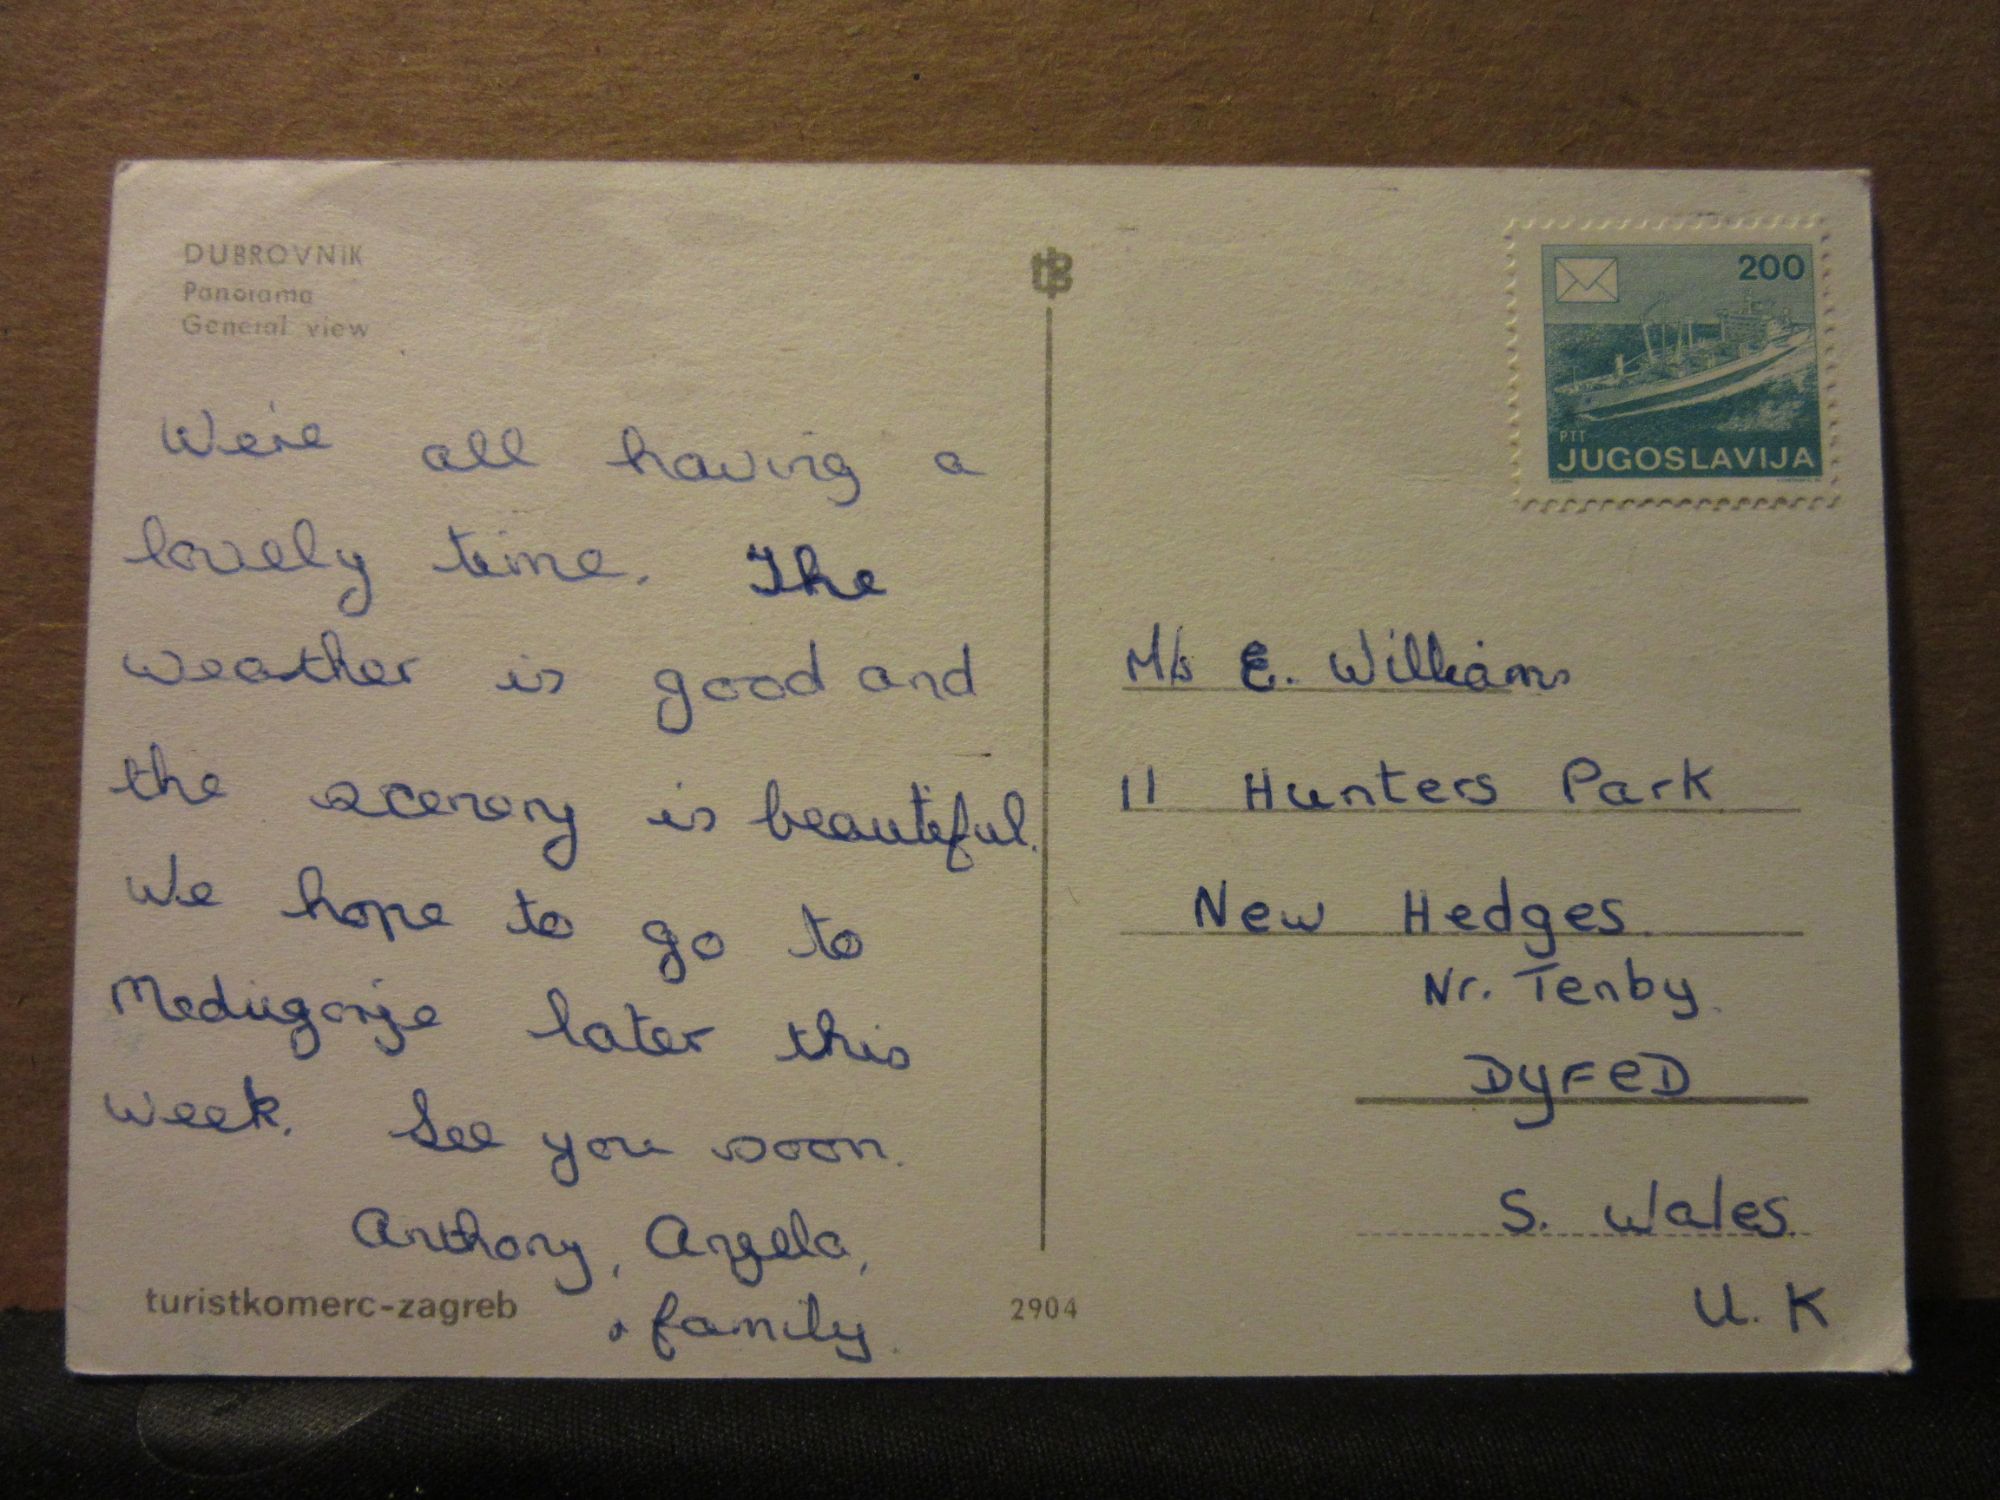 DUBROVNIK
Panorama
General view
We're all having a
lovely time. The
weather is good and
the scenery is beautiful.
We hope to go to
Medugorje later this
week. See you soon.
Anthony, Angela,
+ family.
turistkomerc-zagreb
2904
200
PTT
JUGOSLAVIJA
E. Williams
11 Hunters Park
New Hedges.
Nr. Tenby.
DYFeD
S. Wales.
U.K